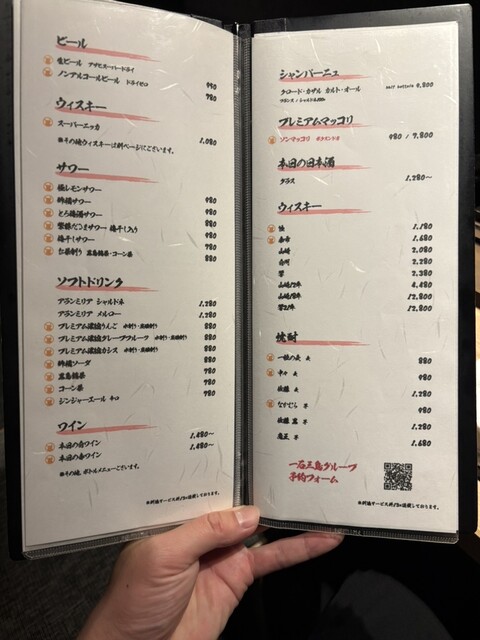 ビール
生ビール アサヒスーパードライ 990
ノンアルコールビール ドライゼロ 780
ウィスキー
スーパーニッカ 1,080
※その他ウィスキーは別ページにございます。
サワー
極レモンサワー 980
980
とろ梅酒サワー 980
980
梅干しサワー 780
880
ソフトドリンク
アランミリア シャルドネ 1,280
アランミリア メルロー 1,280
プレミアム りんご 880
プレミアム グレープフルーツ 880
プレミアム カシス 880
ソーダ 880
980
コーン茶 780
ジンジャーエール 辛口 780
ワイン
本日の白ワイン 1,480〜
本日の赤ワイン 1,480〜
※その他、ボトルメニューございます。
シャンパーニュ
クロード・カザル カルト・オール half bottole 9,800
フランス / シャルドネ100%
プレミアムマッコリ
ソンマッコリ 980 / 7,800
本日の日本酒
グラス 1,280〜
ウィスキー
1,180
1,680
山崎 2,080
白州 2,280
響 2,380
山崎12年 4,480
山崎18年 12,800
響21年 12,800
焼酎
一粒の麦 麦 880
中々 麦 980
佐藤 麦 1,280
なかむら 芋 980
佐藤 黒 芋 1,280
魔王 芋 1,680
一石三鳥グループ
予約フォーム